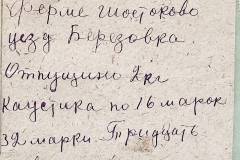 Ферме Шостоково
уезд Березовка.
Отпущино 2 кг
Каустика по 16 марок
32 марки. Тридцать